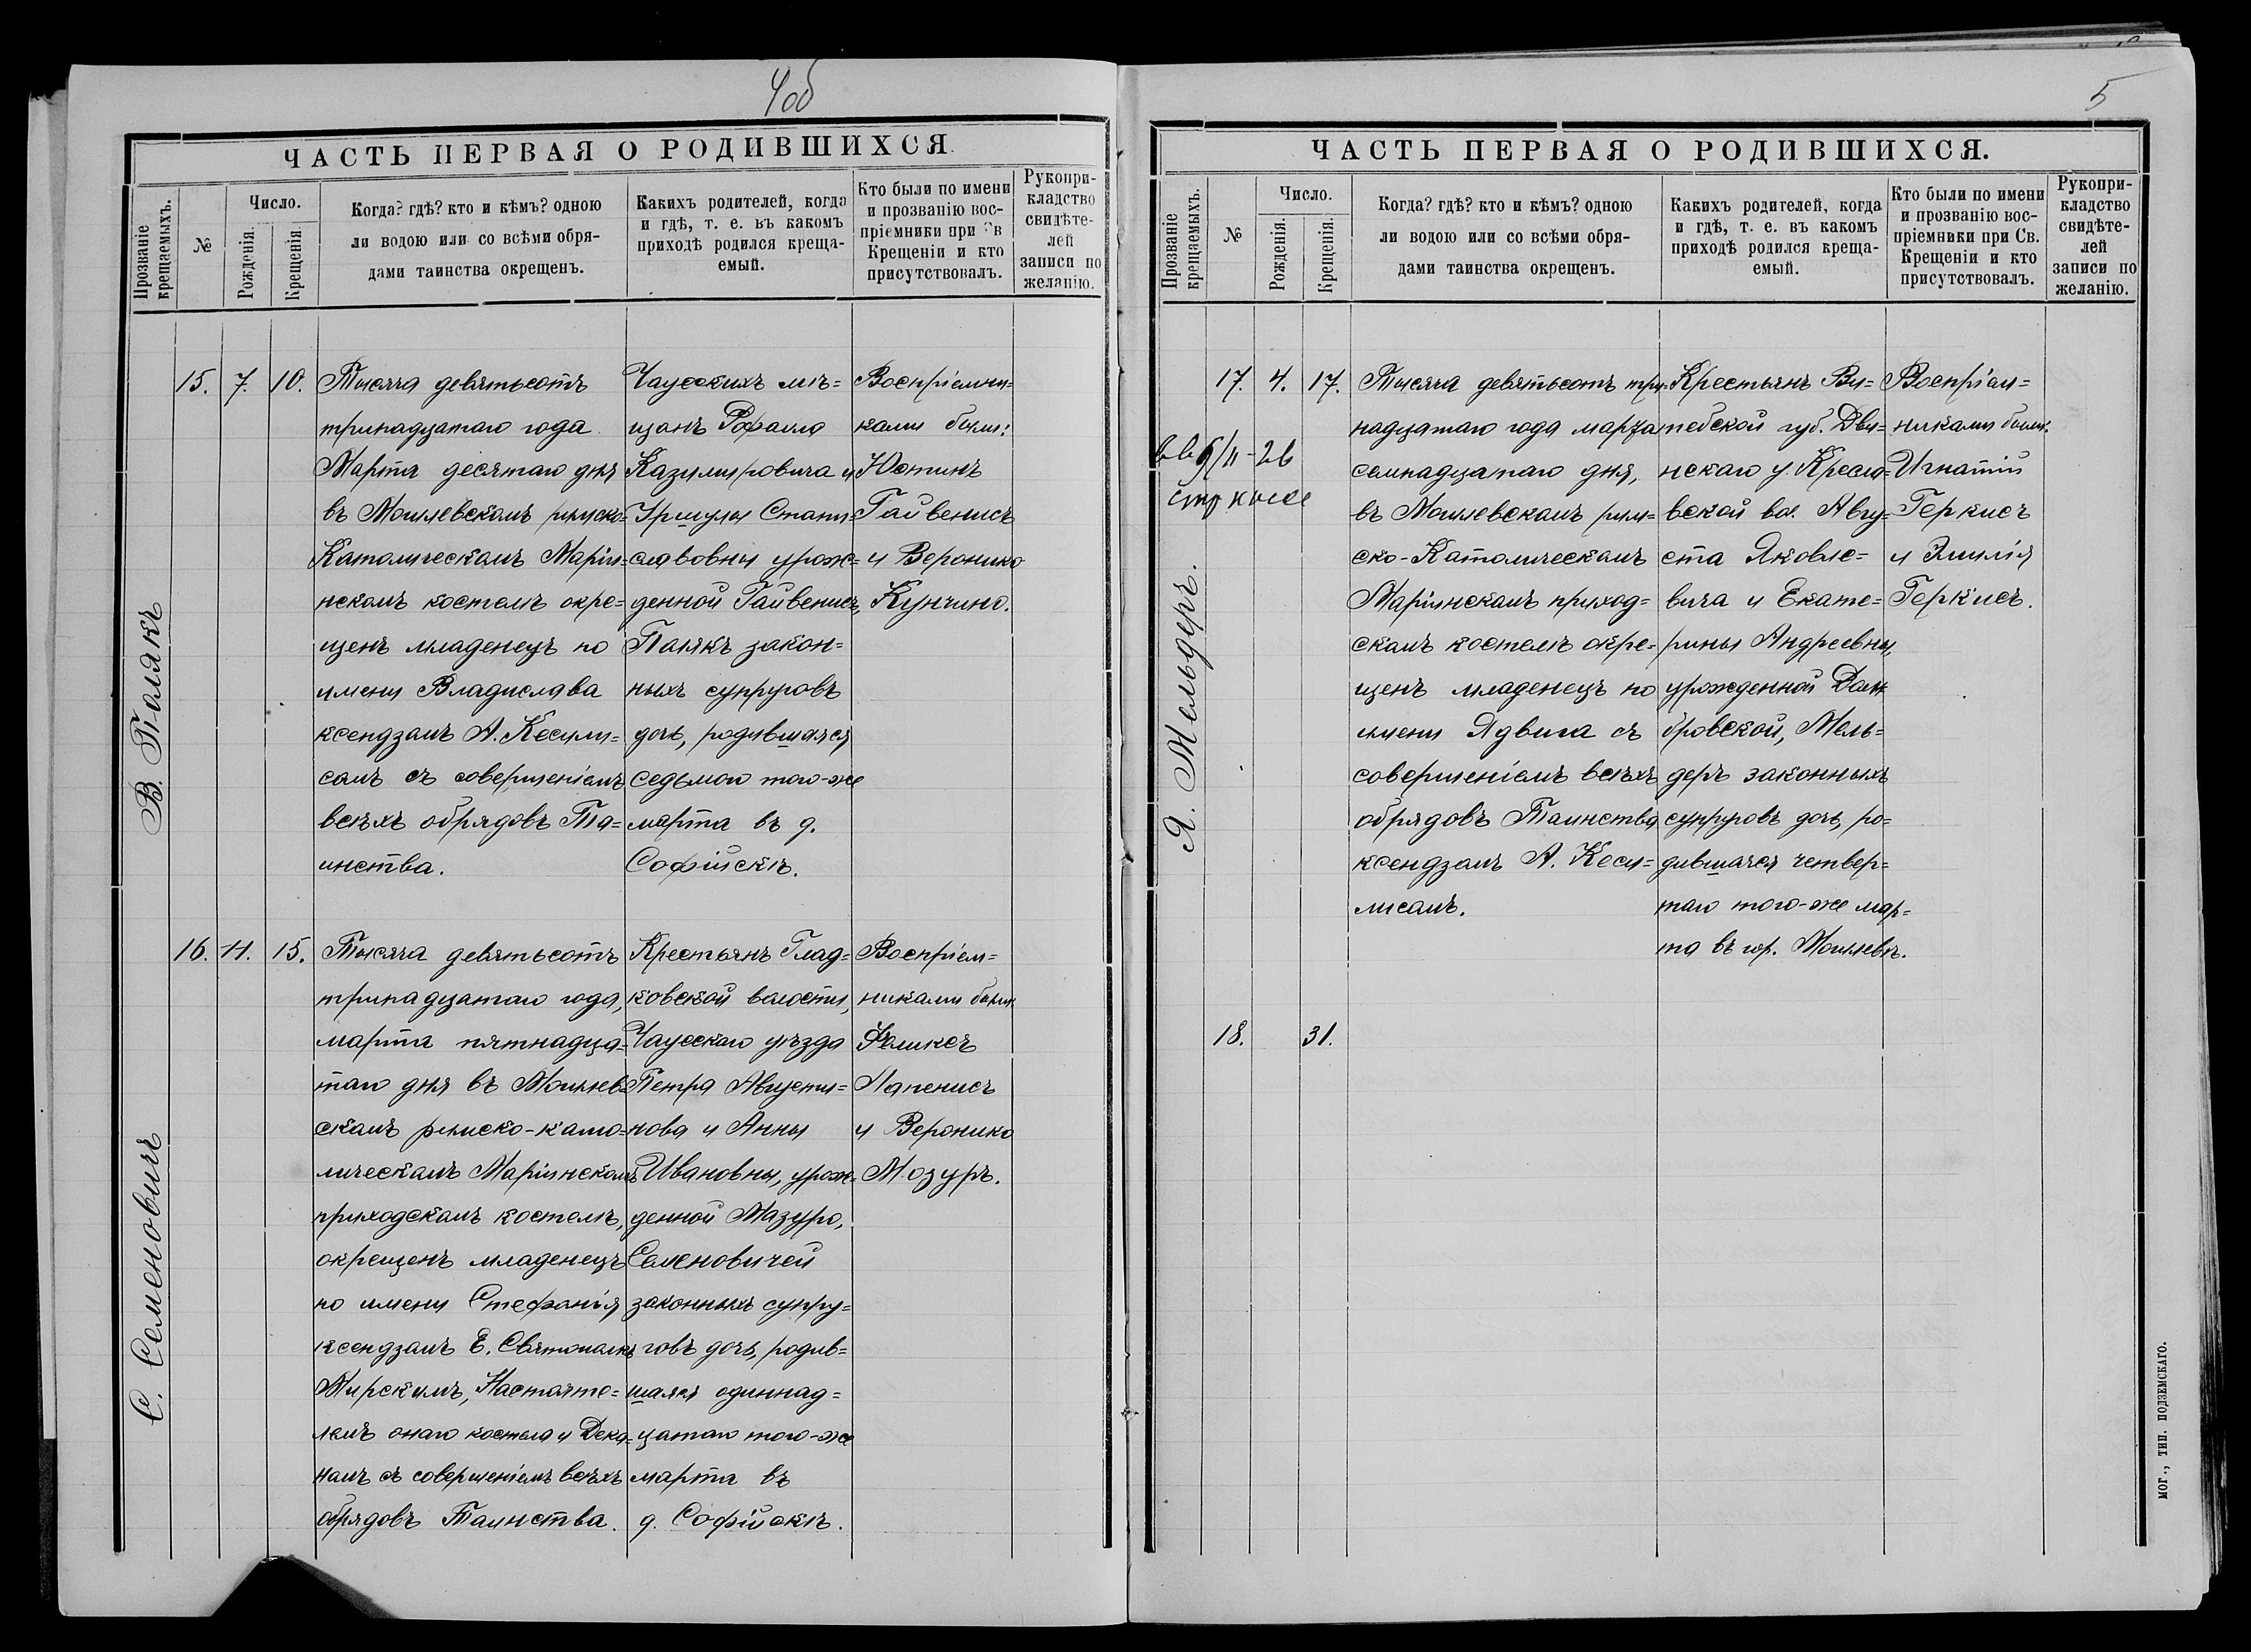 4об
ЧАСТЬ ПЕРВАЯ О РОДИВШИХСЯ.
Прозваніе крещаемыхъ.
№
Число.
Рожденія.
Крещенія.
Когда? гдѣ? кто и кѣмъ? одною
ли водою или со всѣми обря-
дами таинства окрещенъ.
Какихъ родителей, когда
и гдѣ, т. е. въ какомъ
приходѣ родился креща-
емый.
Кто были по имени
и прозванію вос-
пріемники при Св
Крещеніи и кто
присутствовалъ.
Рукопри-
кладство
свидѣте-
лей
записи по
желанію.
В. Полякъ
15. 7. 10.
Тысяча девятьсотъ
тринадцатаго года
Марта десятаго дня
въ Могилевскомъ римско-
Католическомъ Маріи-
нскомъ костелѣ окре-
щенъ младенецъ по
имени Владислава
ксендзомъ А. Кесими-
сомъ съ совершеніемъ
всѣхъ обрядовъ Та-
инства.
Чаусскихъ мѣ=
щанъ Рафаила
Казимировича и
Уршулы Стани=
славовны урож=
денной Гайвенисъ,
Полякъ закон=
ныхъ супруговъ
дочь, родившаяся
седьмого того-же
марта въ д.
Софійскѣ.
Воспріемни=
ками были:
Юстинъ
Гайвенисъ
и Вероника
Кунчина.
С. Семеновичъ
16. 11. 15.
Тысяча девятьсотъ
тринадцатаго года,
марта пятнадца-
таго дня въ Могилев-
скомъ римско-като-
лическомъ Маріинскомъ
приходскомъ костелѣ,
окрещенъ младенецъ
по имени Стефанія
ксендзомъ Е. Святополкъ
Мирскимъ, Настояте=
лемъ онаго костела и Дека-
номъ съ совершеніемъ всѣхъ
обрядовъ Таинства.
Крестьянъ Глад=
ковской волости,
Чаусскаго уѣзда
Петра Августи=
нова и Анны
Ивановны, урож-
денной Мазуро,
Семеновичей
законныхъ супру=
говъ дочь, родив=
шаяся одиннад=
цатаго того-же
марта въ
д. Софійскѣ.
Воспріем=
никами были
Феликсъ
Лапенисъ
и Вероника
Мозуръ.
5
ЧАСТЬ ПЕРВАЯ О РОДИВШИХСЯ.
Прозваніе крещаемыхъ.
№
Число.
Рожденія.
Крещенія.
Когда? гдѣ? кто и кѣмъ? одною
ли водою или со всѣми обря-
дами таинства окрещенъ.
Какихъ родителей, когда
и гдѣ, т. е. въ какомъ
приходѣ родился креща-
емый.
Кто были по имени
и прозванію вос-
пріемники при Св.
Крещеніи и кто
присутствовалъ.
Рукопри-
кладство
свидѣте-
лей
записи по
желанію.
Я. Мельдеръ.
17. 4. 17.
Тысяча девятьсотъ три-
надцатаго года марта
семнадцатаго дня,
въ Могилевскомъ рим=
ско-Католическомъ
Маріинскомъ приход-
скомъ костелѣ окре-
щенъ младенецъ по
имени Ядвига съ
совершеніемъ всѣхъ
обрядовъ Таинства
ксендзомъ А. Кеси=
мисомъ.
Крестьянъ Ви=
тебской губ. Дви=
нскаго у. Кресла-
вской вол. Авгу-
ста Яковле=
вича и Екате=
рины Андреевны,
урожденной Дом
бровской, Мель=
деръ законныхъ
супруговъ дочь, ро=
дившаяся четвер=
таго того-же мар=
та въ гор. Могилевѣ.
Воспріем=
никами были.
Игнатій
Геркисъ
и Эмилія
Геркисъ.
18. 31.
МОГ., ТИП. ПОДЗЕМСКАГО.